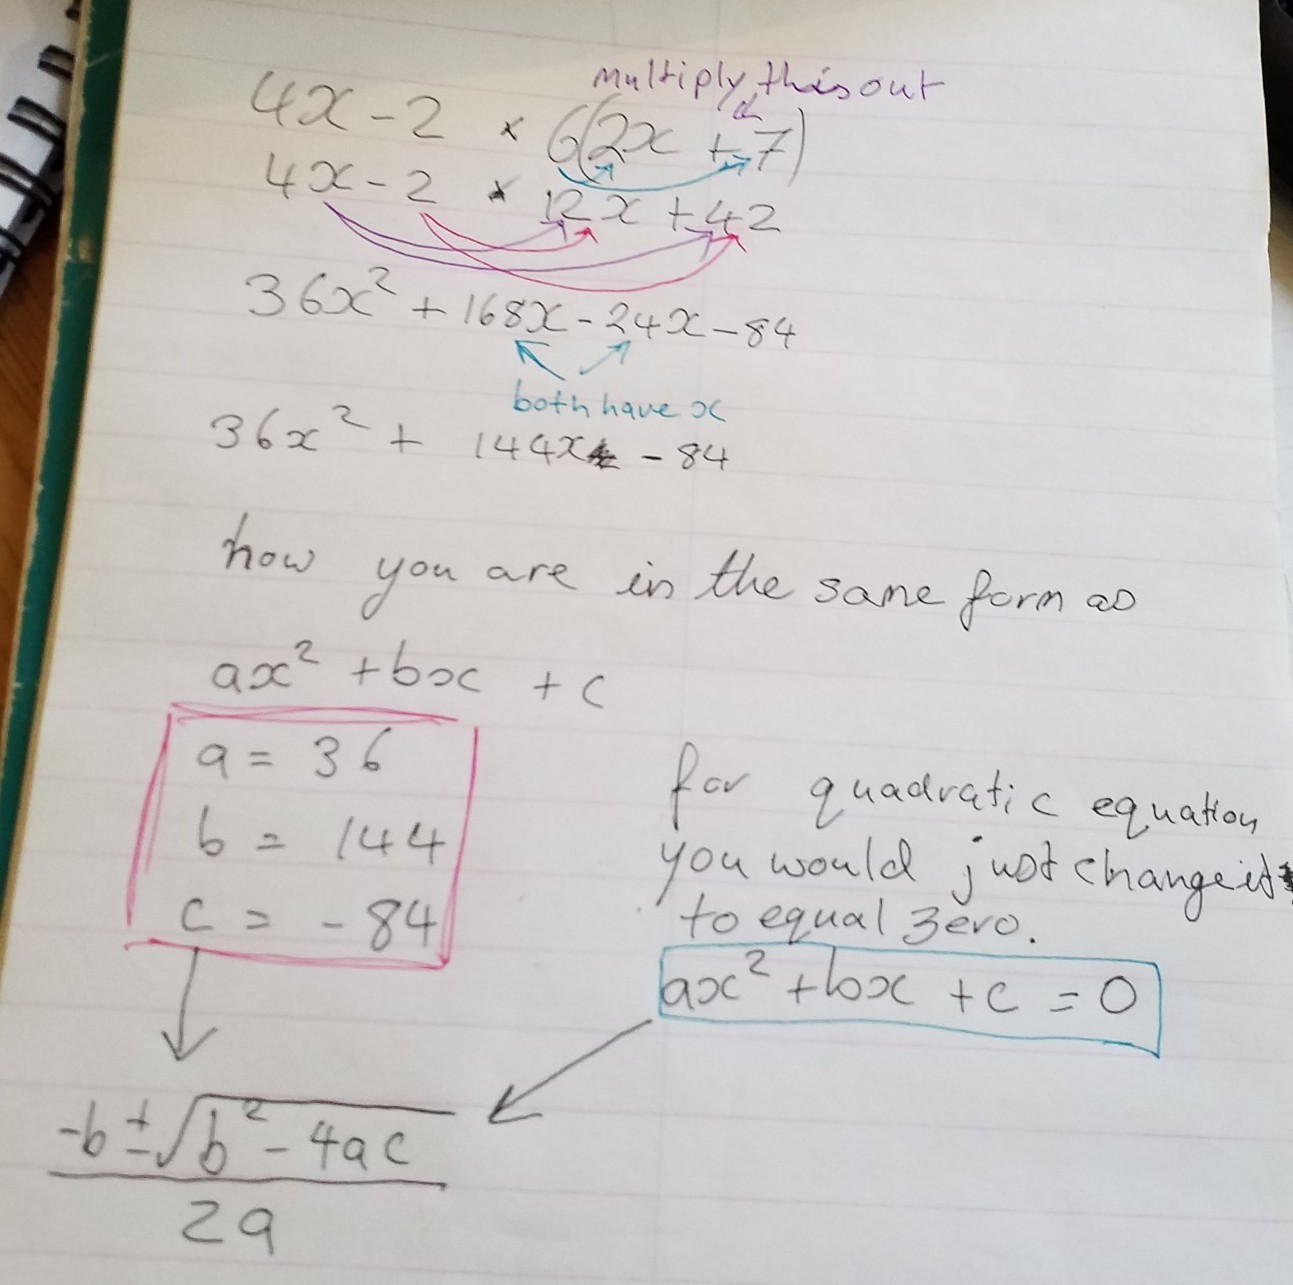 multiply this out
4x - 2 × 6(2x + 7)
4x - 2 × 12x + 42
36x² + 168x - 24x - 84
both have x
36x² + 144x - 84
how you are in the same form as
ax² + bx + c
a = 36
b = 144
c = - 84
for quadratic equation
you would just change it
to equal zero.
ax² + bx + c = 0
-b ± √b² - 4ac
2a